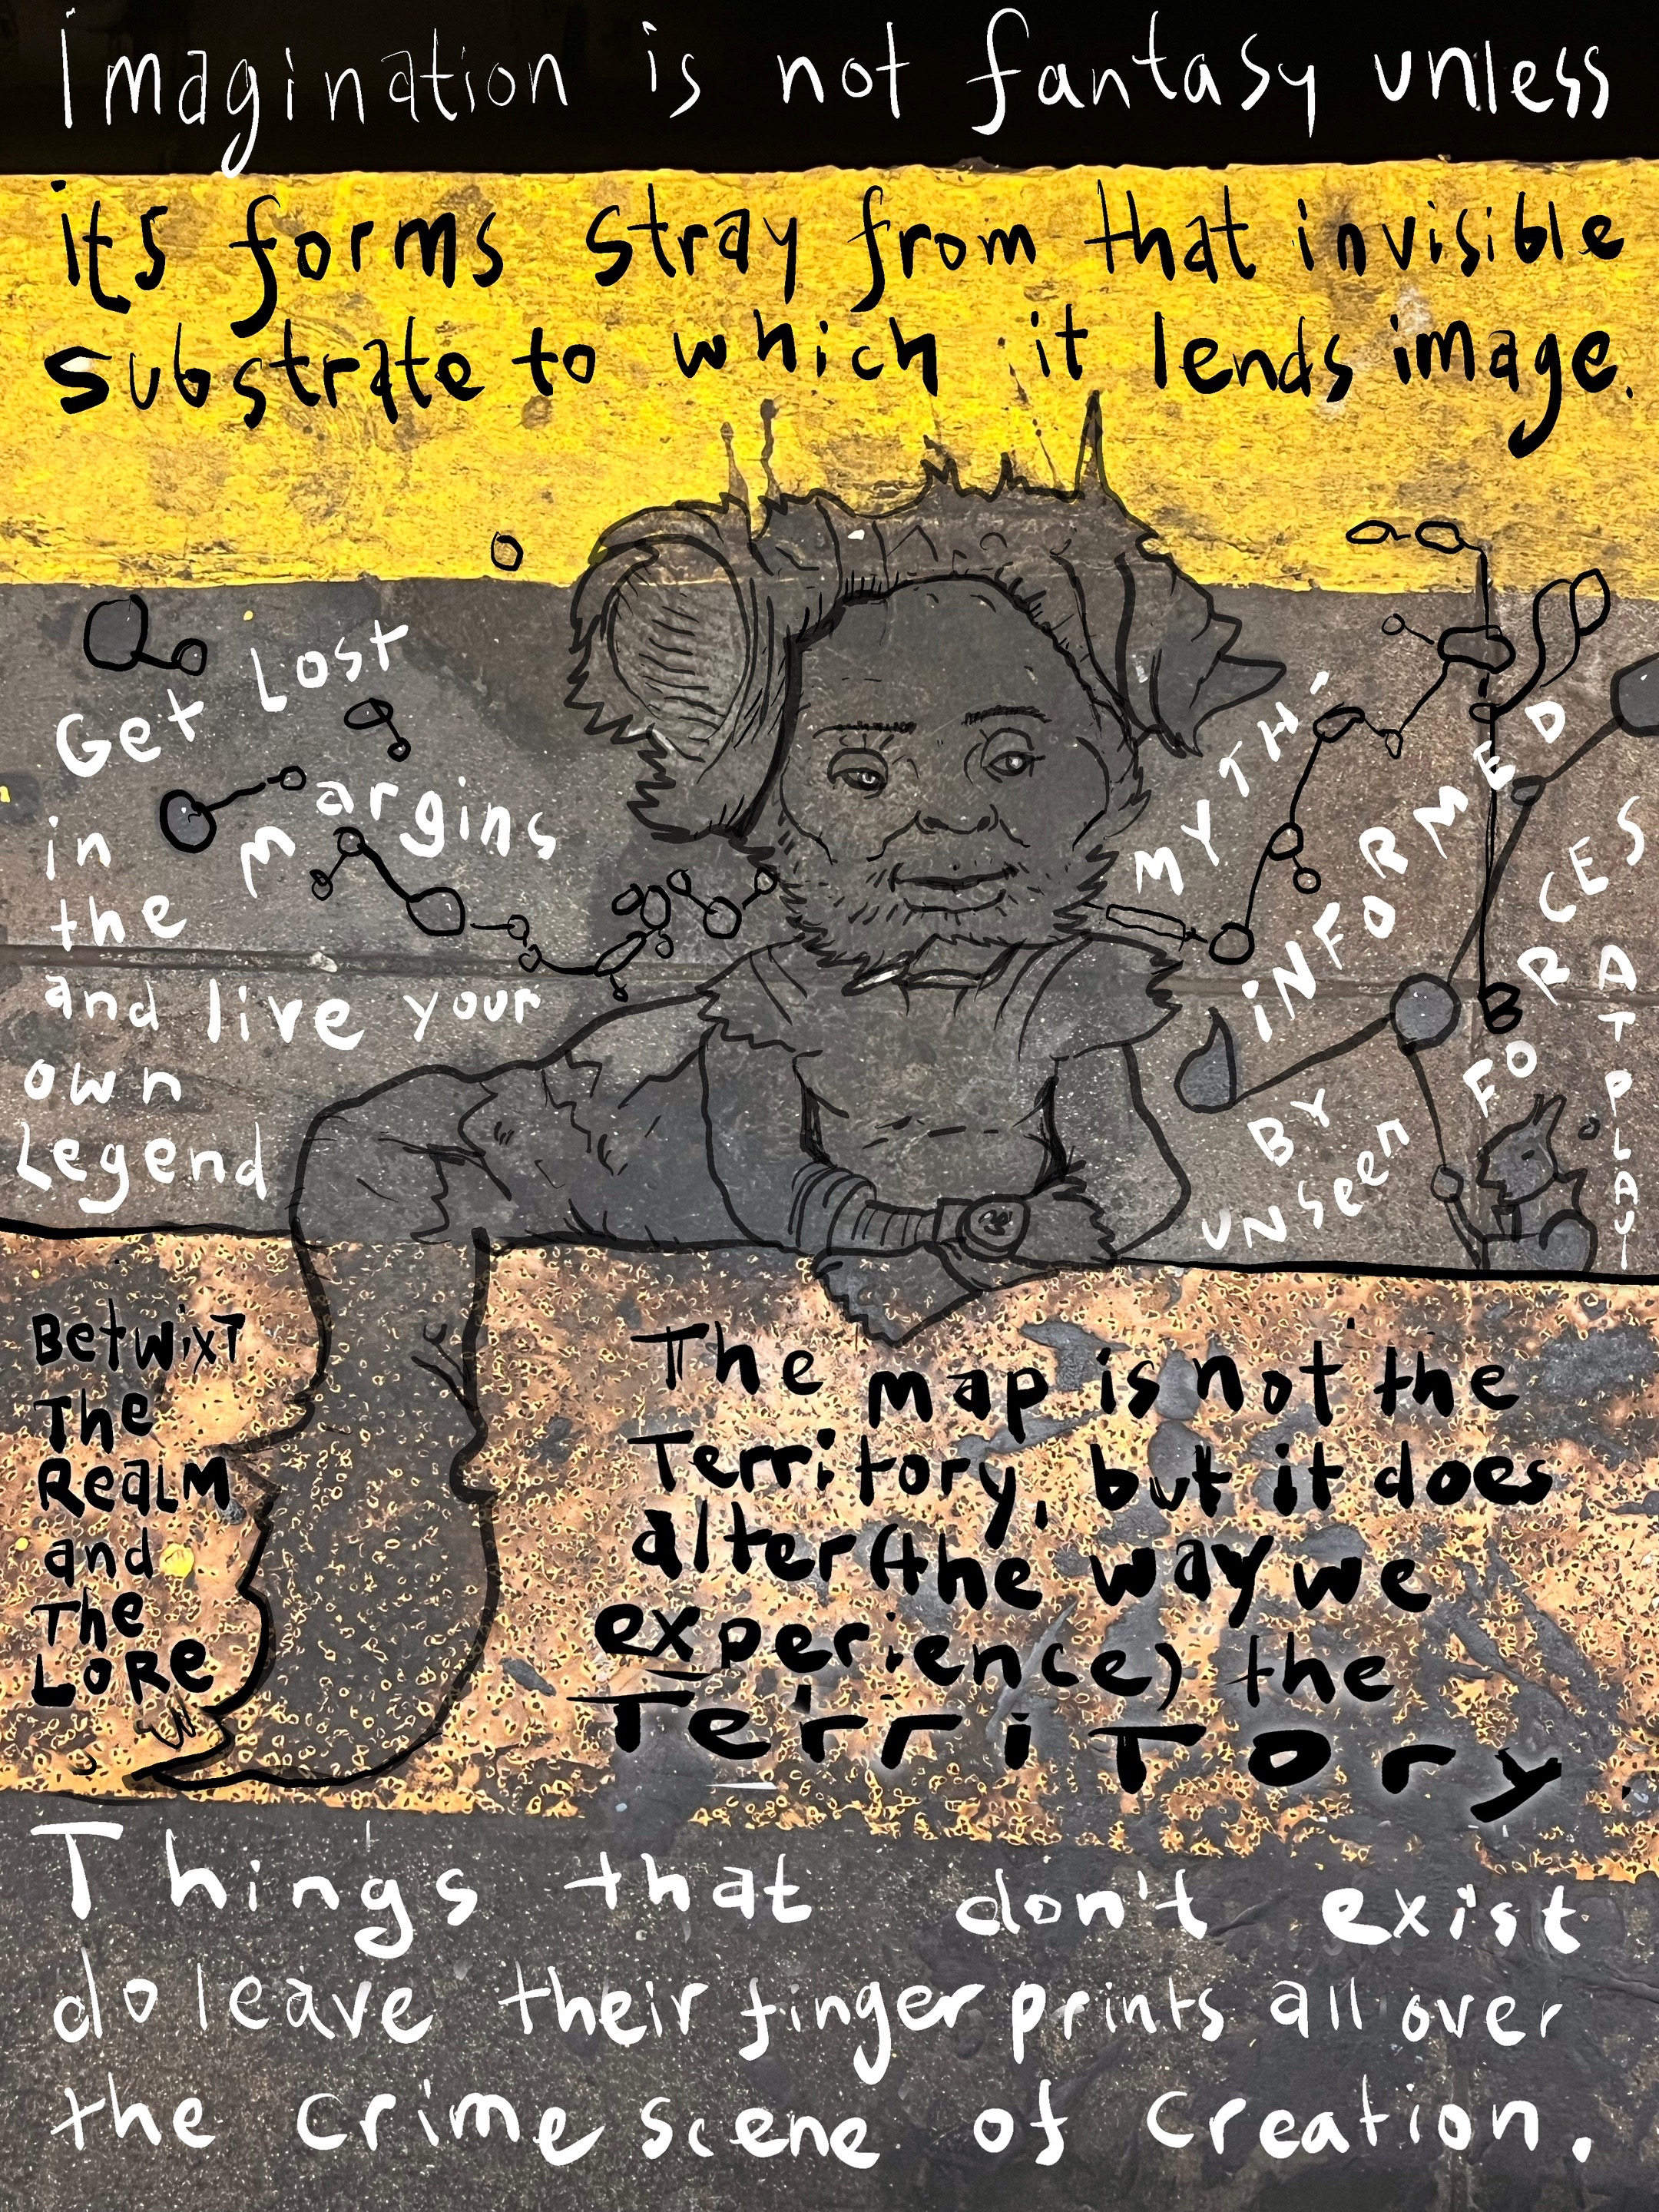 Imagination is not fantasy unless
its forms stray from that invisible
substrate to which it lends image.
Get Lost
in
the margins
and live your
own
Legend
MYTH,
iNFORMED
BY
UNSeen
FORCES
AT PLAY!
BetwixT
The
ReaLM
and
The
LORe
The map is not the
Territory, but it does
alter (the way we
experience) the
TerriTory.
Things that don't exist
do leave their finger prints all over
the crime scene of creation.